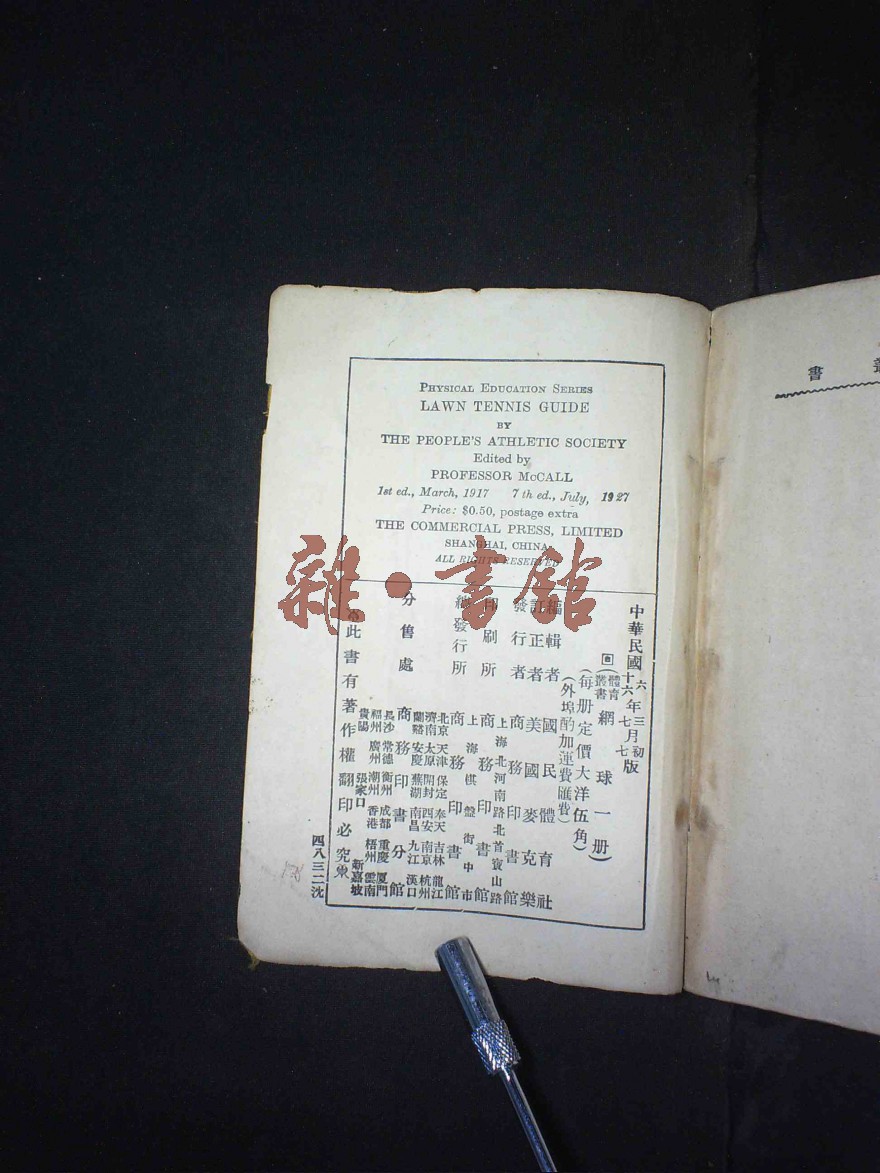 PHYSICAL EDUCATION SERIES
LAWN TENNIS GUIDE
BY
THE PEOPLE'S ATHLETIC SOCIETY
Edited by
PROFESSOR McCALL
1st ed., March, 1917 7th ed., July, 1927
Price: $0.50, postage extra
THE COMMERCIAL PRESS, LIMITED
SHANGHAI, CHINA
ALL RIGHTS RESERVED
雜·書館
中華民國六年三月初版
十六年七月七版
(體育叢書)網球一册
(每册定價大洋伍角)
(外埠酌加運費匯費)
編輯者 國民體育社
訂正者 美國麥克樂
發行者 商務印書館
印刷所 上海北河南路北首寶山路 商務印書館
總發行所 上海棋盤街中市 商務印書館
分售處 商務印書分館
北京 天津 保定 奉天 吉林 龍江
濟南 太原 開封 西安 南京 杭州
蘭谿 安慶 蕪湖 南昌 九江 漢口
長沙 常德 衡州 成都 重慶 厦門
福州 廣州 潮州 香港 梧州 雲南
貴陽 張家口 新嘉坡
此書有著作權翻印必究
四八三二沈
叢書